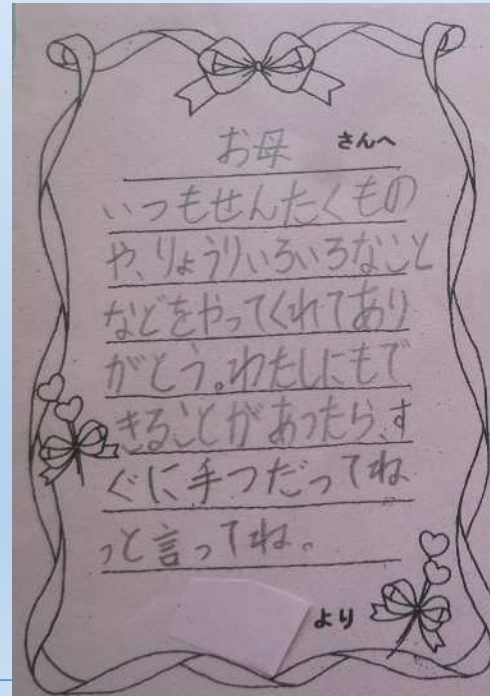 お母 さんへ
いつもせんたくもの
や、りょうりいろいろなこと
などをやってくれてあり
がとう。わたしにもで
きることがあったら、す
ぐに手つだってね
っと言ってね。
より